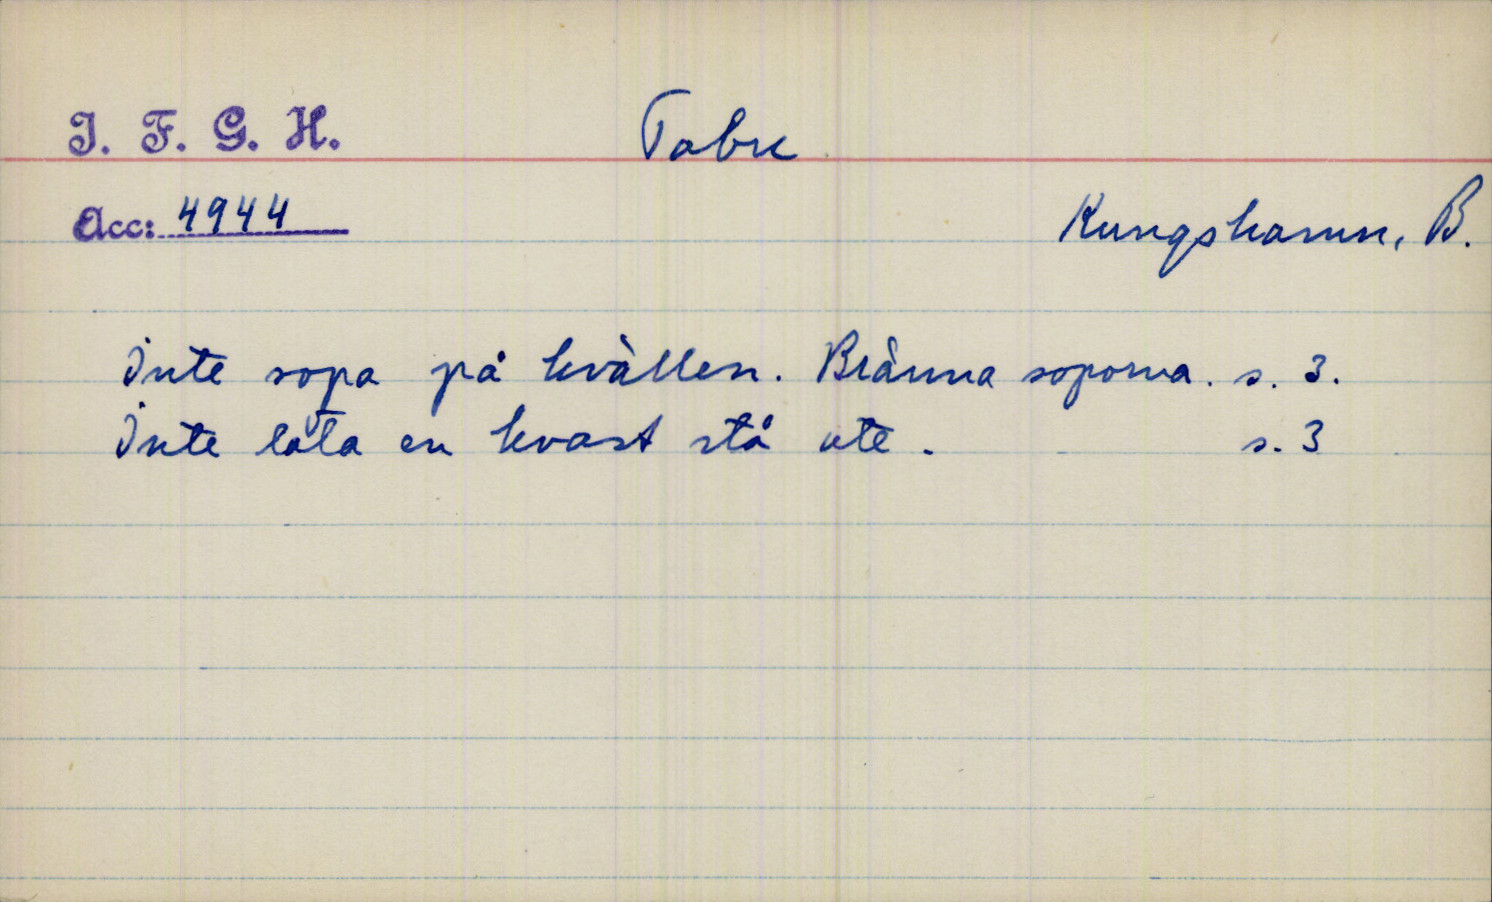 I. F. G. H.
Tabu
Acc: 4944
Kungshamn, B.
Inte sopa på kvällen. Bränna soporna. s. 3.
Inte låta en kvast stå ute. s. 3